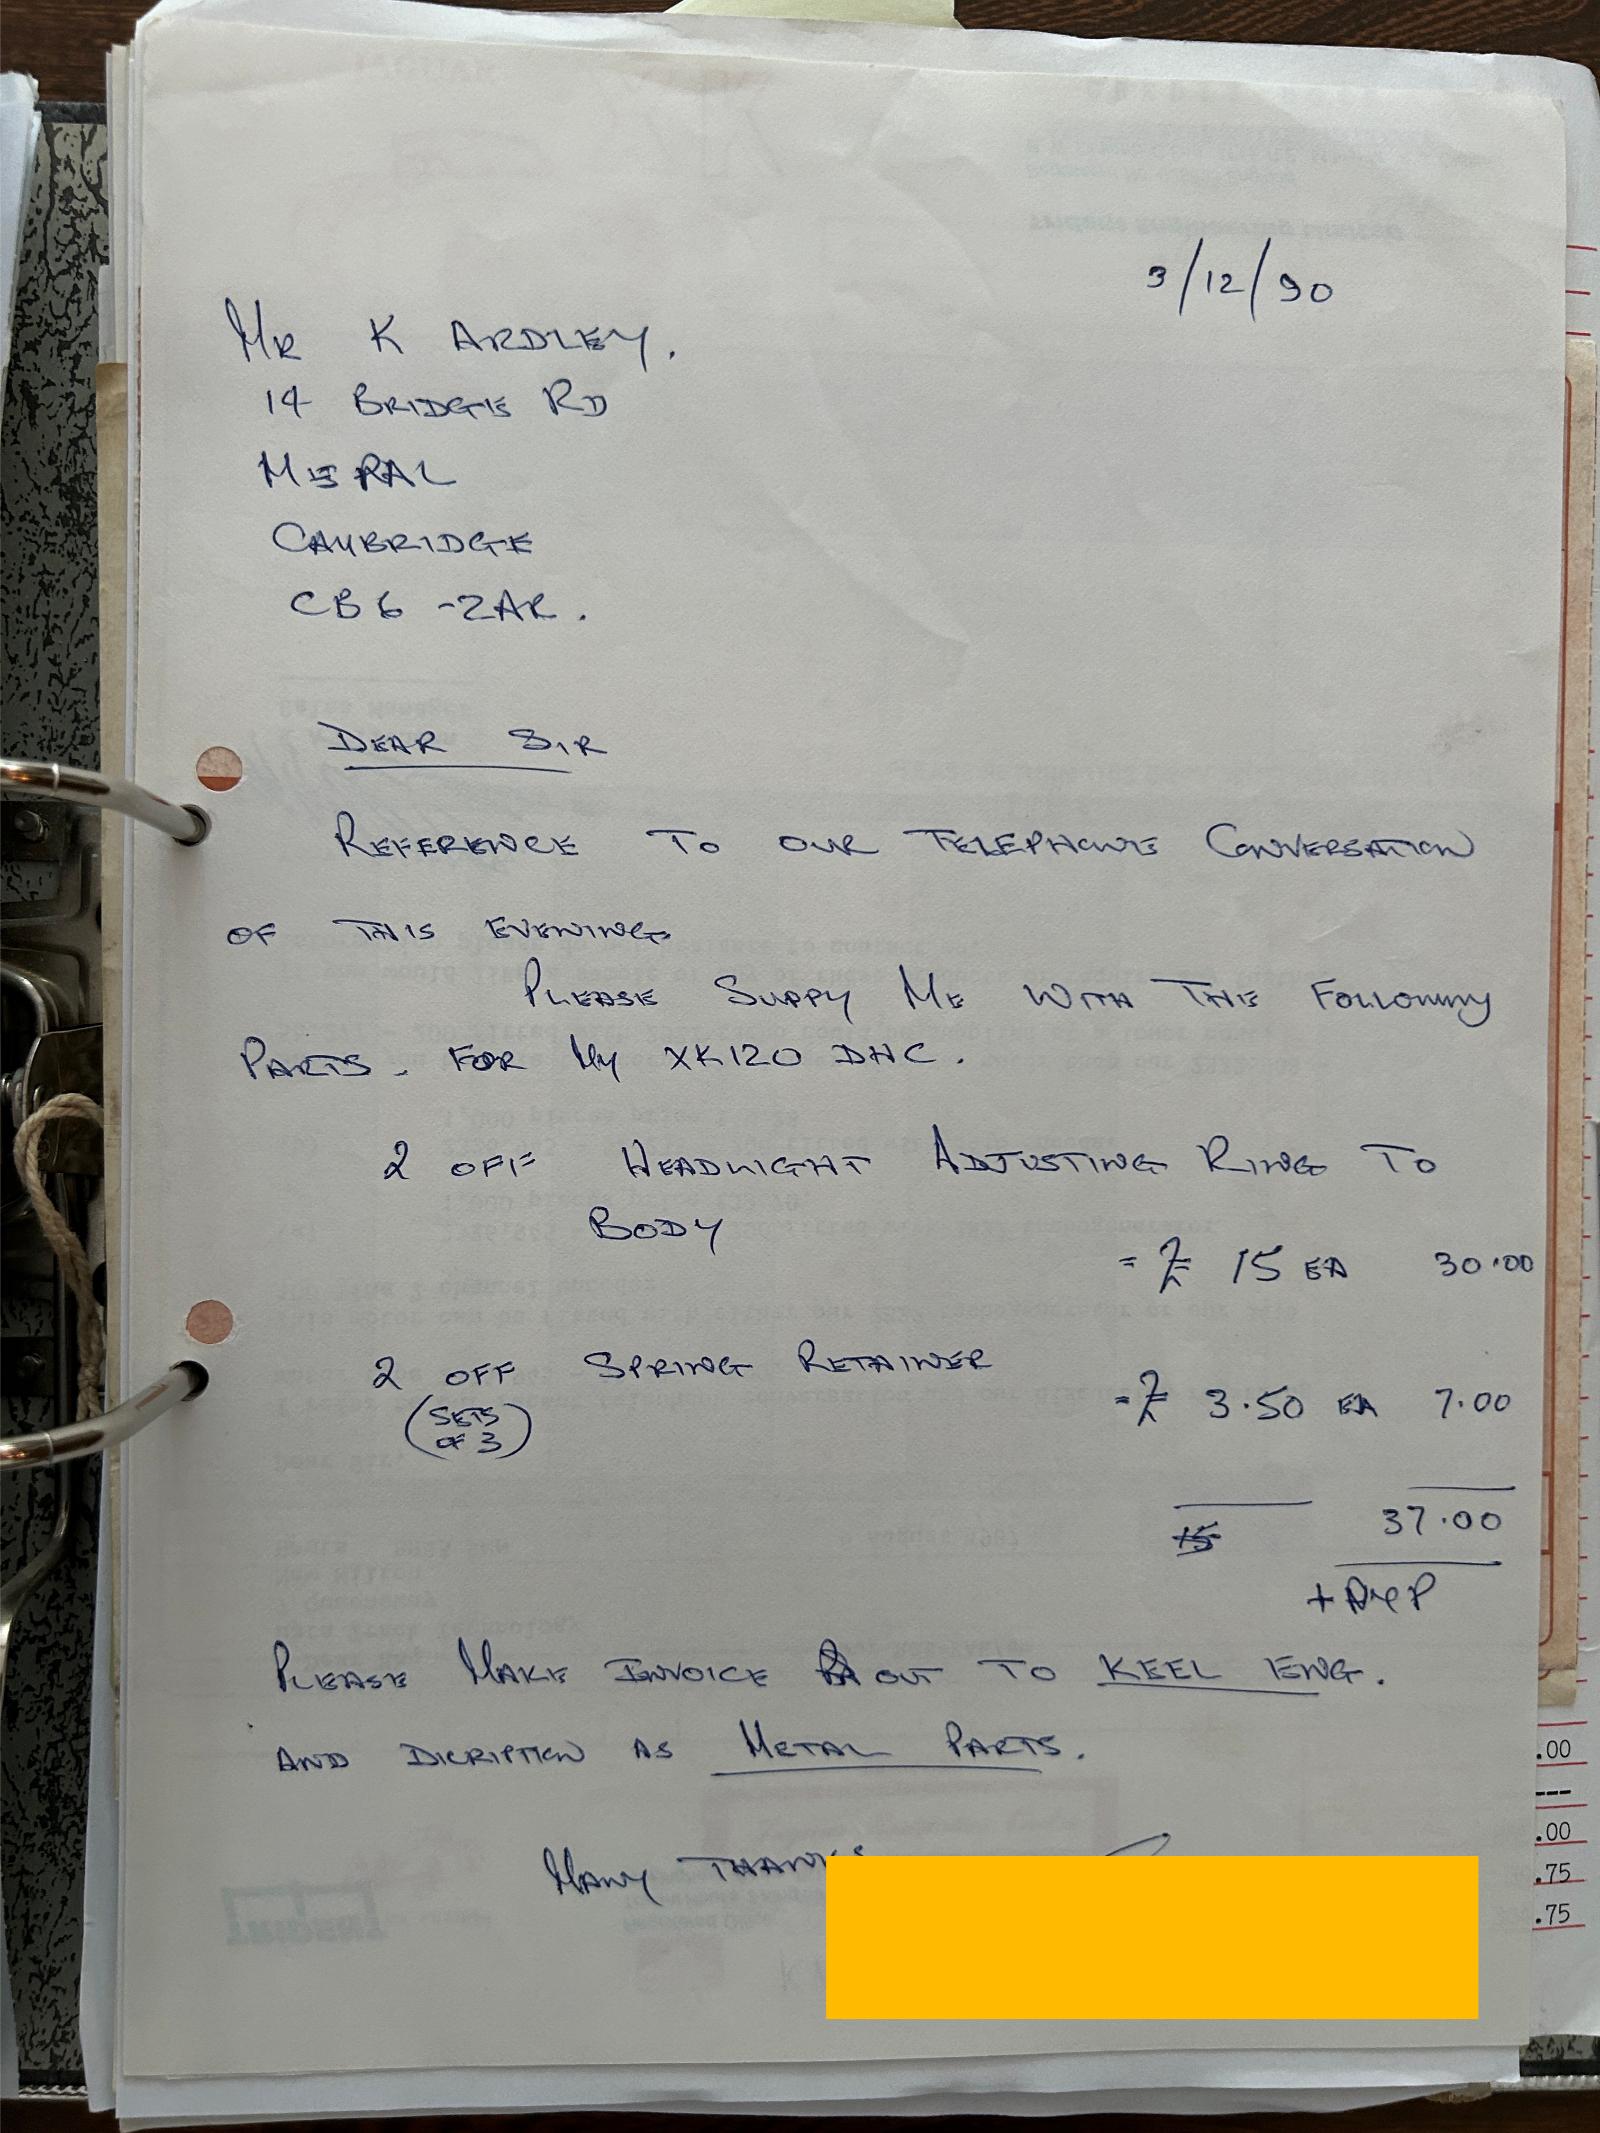 3/12/90
MR K ARDLEY.
14 BRIDGE RD
MEPAL
CAMBRIDGE
CB6 -2AR.
DEAR SIR
REFERENCE TO OUR TELEPHONE CONVERSATION
OF THIS EVENING.
PLEASE SUPPY ME WITH THE FOLLOWING
PARTS. FOR MY XK120 DHC.
2 OFF HEADLIGHT ADJUSTING RING TO
BODY
= £ 15 EA 30.00
2 OFF SPRING RETAINER
(SETS
OF 3)
= £ 3.50 EA 7.00
15 37.00
+ P&P
PLEASE MAKE INVOICE OUT TO KEEL ENG.
AND DICRIPTION AS METAL PARTS.
MANY THANKS
.00
---
.00
.75
.75